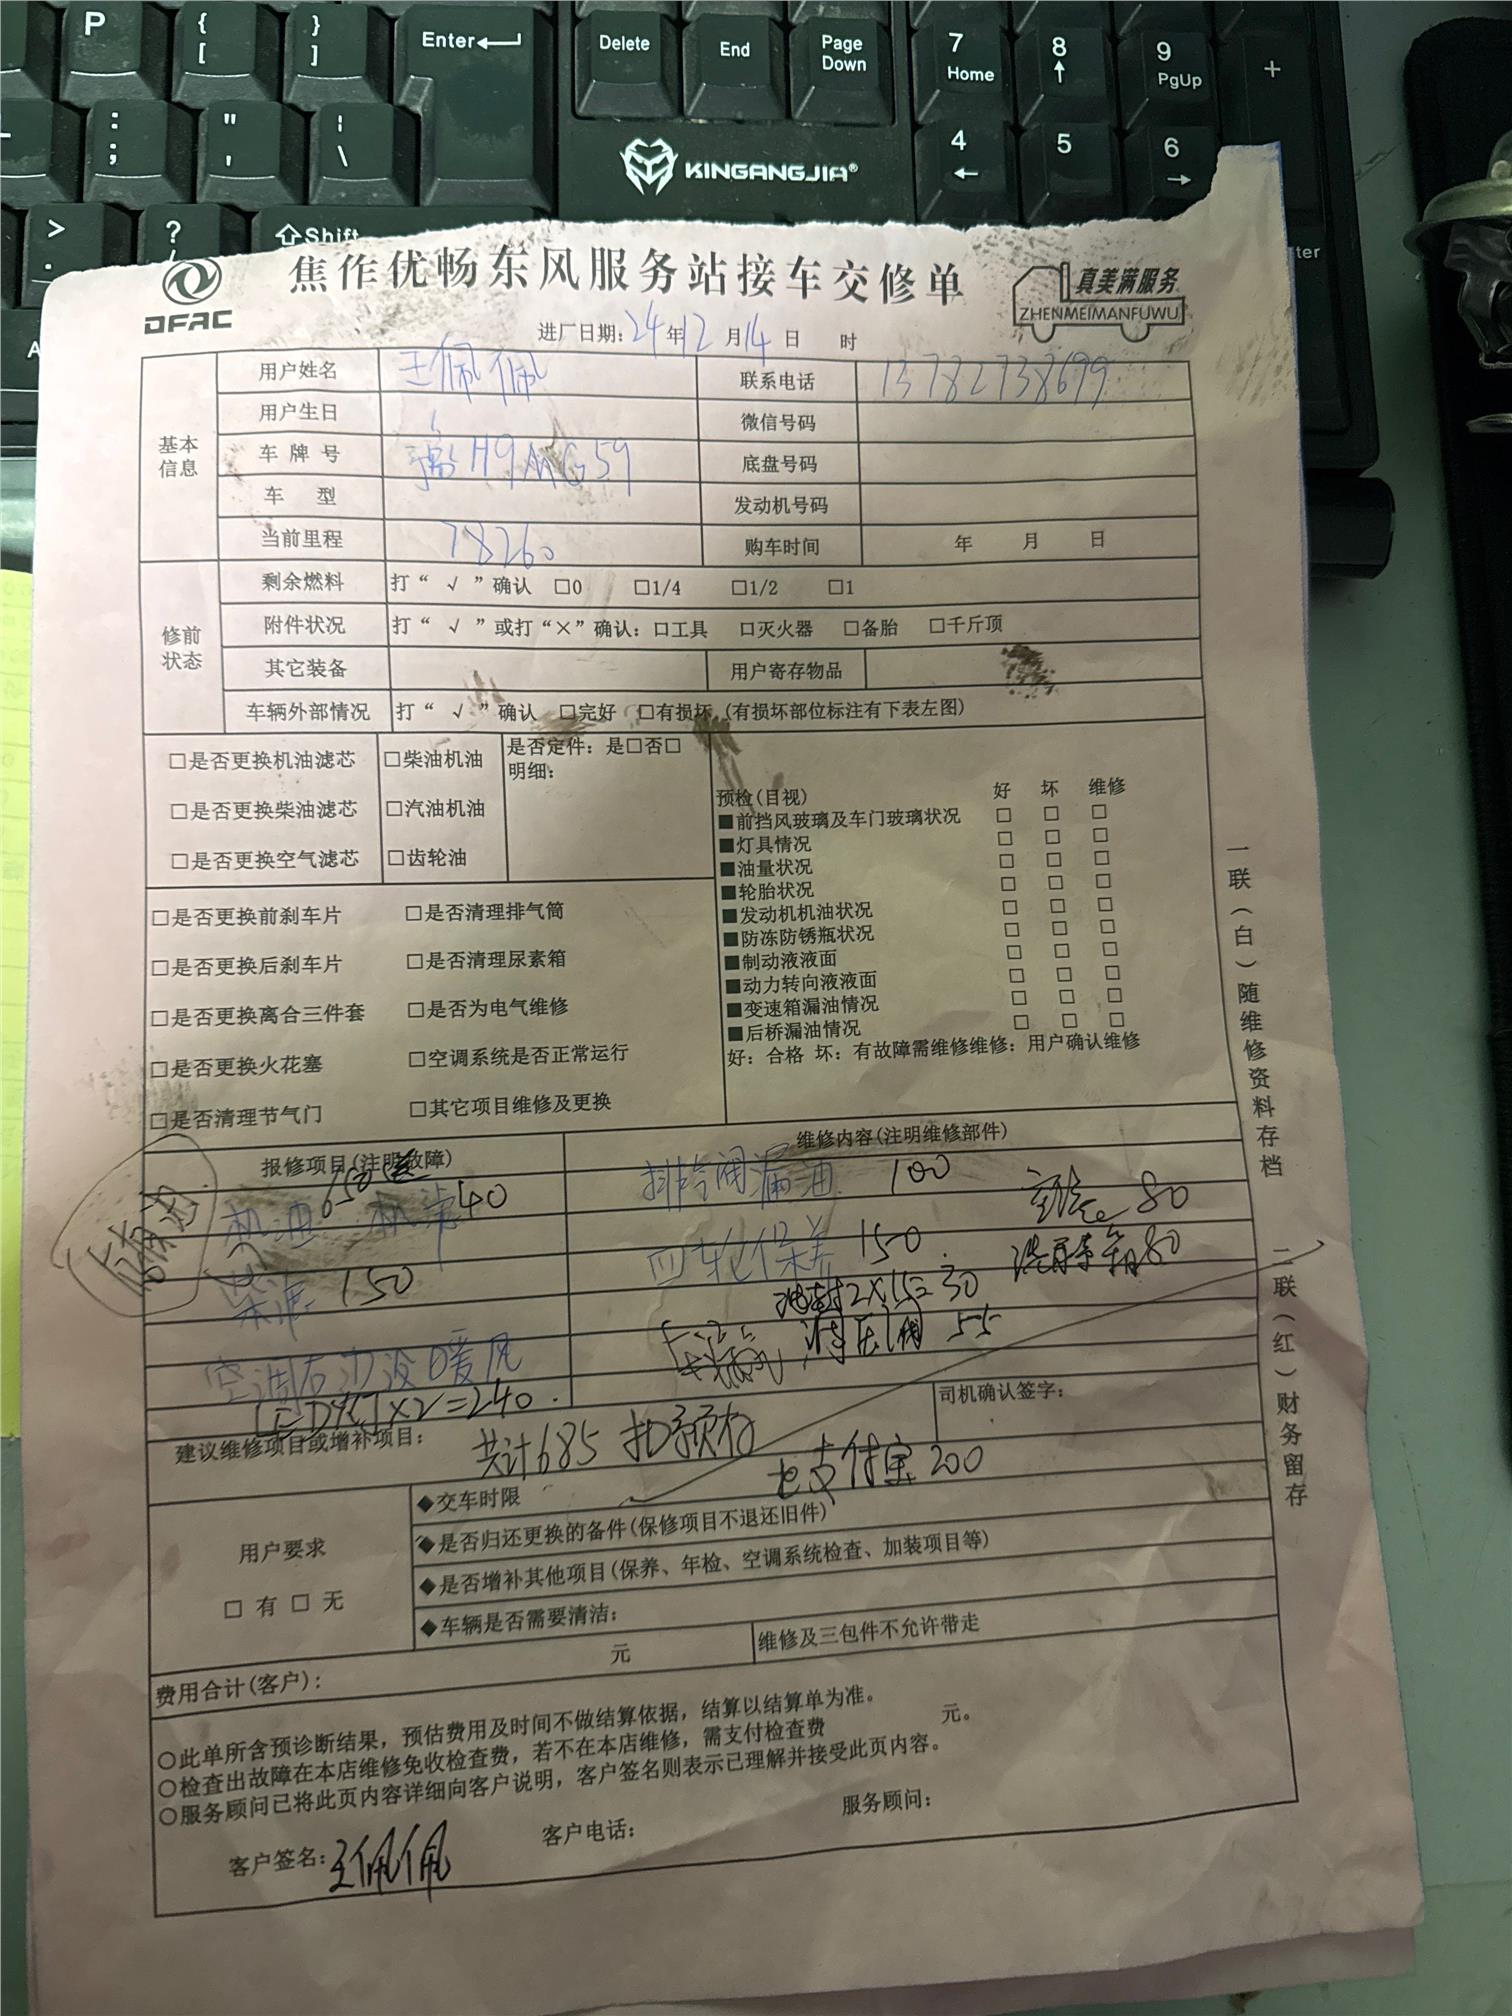 P
{
[
}
]
Enter
Delete
End
Page
Down
7
Home
8
9
PgUp
+
:
;
"
'
\
KINGANGJIA®
4
5
6
>
.
?
Shift
DFAC
焦作优畅东风服务站接车交修单
真美满服务
ZHENMEIMANFUWU
进厂日期：24年12月14日 时
基本信息
用户姓名 王佩佩 联系电话 13782738699
用户生日 微信号码
车牌号 豫H9MG59 底盘号码
车 型 发动机号码
当前里程 78260 购车时间 年 月 日
修前状态
剩余燃料 打“ √ ”确认 □0 □1/4 □1/2 □1
附件状况 打“ √ ”或打“×”确认：□工具 □灭火器 □备胎 □千斤顶
其它装备 用户寄存物品
车辆外部情况 打“ √ ”确认 □完好 □有损坏（有损坏部位标注有下表左图）
□是否更换机油滤芯 □柴油机油 是否定件：是□否□
明细：
□是否更换柴油滤芯 □汽油机油
□是否更换空气滤芯 □齿轮油
预检(目视) 好 坏 维修
■前挡风玻璃及车门玻璃状况 □ □ □
■灯具情况 □ □ □
■油量状况 □ □ □
■轮胎状况 □ □ □
■发动机机油状况 □ □ □
■防冻防锈瓶状况 □ □ □
■制动液液面 □ □ □
■动力转向液液面 □ □ □
■变速箱漏油情况 □ □ □
■后桥漏油情况 □ □ □
好：合格 坏：有故障需维修维修：用户确认维修
□是否更换前刹车片 □是否清理排气筒
□是否更换后刹车片 □是否清理尿素箱
□是否更换离合三件套 □是否为电气维修
□是否更换火花塞 □空调系统是否正常运行
□是否清理节气门 □其它项目维修及更换
报修项目(注明故障) 维修内容(注明维修部件)
机油 650 送 机滤40
柴滤 150
空调右边没暖风
×2=240
漏油 100
四轮保养 150
空滤 80
洗尿素箱80
油封2×15=30
55
建议维修项目或增补项目： 共计685 扣预存
支付宝200
司机确认签字：
用户要求
□ 有 □ 无
◆交车时限
◆是否归还更换的备件(保修项目不退还旧件)
◆是否增补其他项目(保养、年检、空调系统检查、加装项目等)
◆车辆是否需要清洁：
费用合计(客户)： 元 维修及三包件不允许带走
○此单所含预诊断结果，预估费用及时间不做结算依据，结算以结算单为准。
○检查出故障在本店维修免收检查费，若不在本店维修，需支付检查费 元。
○服务顾问已将此页内容详细向客户说明，客户签名则表示已理解并接受此页内容。
客户签名：王佩佩 客户电话： 服务顾问：
一联（白）随维修资料存档
二联（红）财务留存